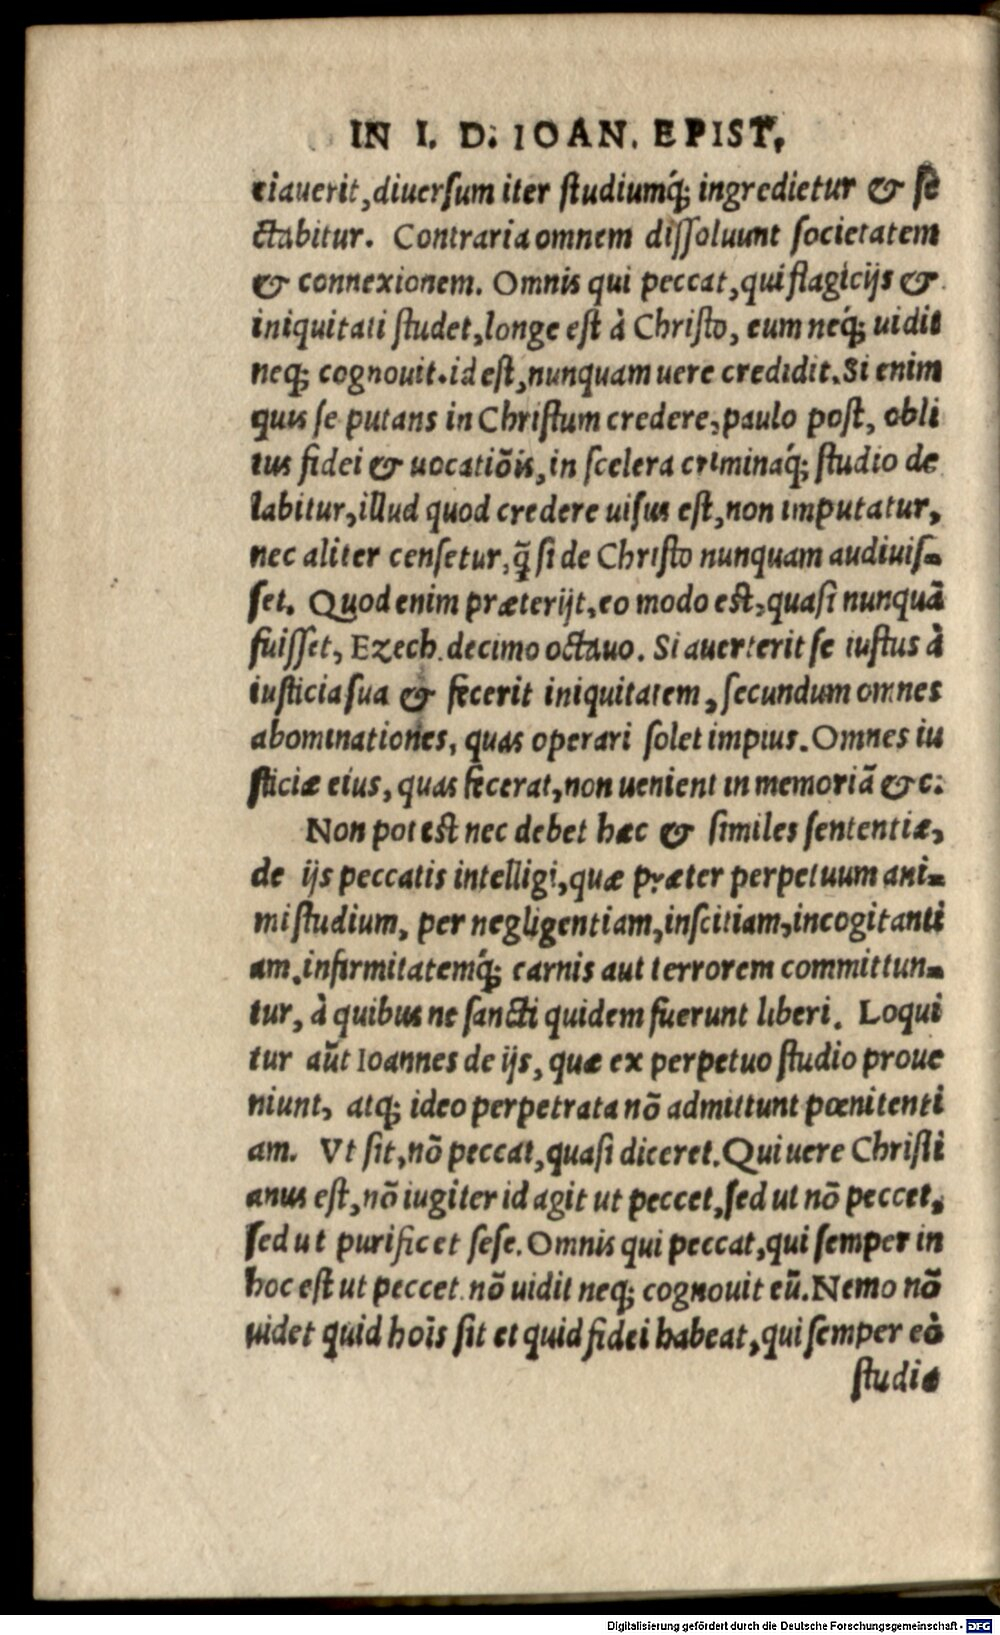 IN I. D. IOAN. EPIST,
ciauerit, diuersum iter studiumq́; ingredietur & se
ctabitur. Contraria omnem dissoluunt societatem
& connexionem. Omnis qui peccat, qui flagicijs &
iniquitati studet, longe est à Christo, eum neq́; uidit
neq; cognouit. id est, nunquam uere credidit. Si enim
quis se putans in Christum credere, paulo post, obli
tus fidei & uocatiõis, in scelera criminaq́; studio de
labitur, illud quod credere uisus est, non imputatur,
nec aliter censetur, q̃ si de Christo nunquam audiuis-
set. Quod enim præterijt, eo modo est, quasi nunquã
fuisset, Ezech. decimo octauo. Si auerterit se iustus à
iusticia sua & fecerit iniquitatem, secundum omnes
abominationes, quas operari solet impius. Omnes iu
sticiæ eius, quas fecerat, non uenient in memoriã &c:
Non potest nec debet hæc & similes sententiæ,
de ijs peccatis intelligi, quæ præter perpetuum ani-
mi studium, per negligentiam, inscitiam, incogitanti
am, infirmitatemq́; carnis aut terrorem committun-
tur, à quibus ne sancti quidem fuerunt liberi. Loqui
tur aũt Ioannes de ijs, quæ ex perpetuo studio proue
niunt, atq; ideo perpetrata nõ admittunt pœnitenti
am. Vt sit, nõ peccat, quasi diceret. Qui uere Christi
anus est, nõ iugiter id agit ut peccet, sed ut nõ peccet,
sed ut purificet sese. Omnis qui peccat, qui semper in
hoc est ut peccet. nõ uidit neq; cognouit eũ. Nemo nõ
uidet quid hoĩs sit et quid fidei habeat, qui semper eò
studio
Digitalisierung gefördert durch die Deutsche Forschungsgemeinschaft - DFG